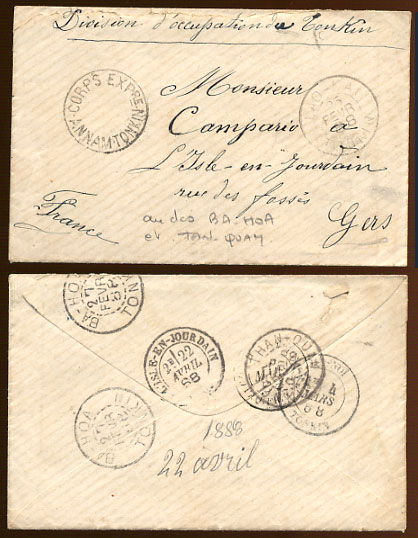 Division d'occupation du Tonkin
CORPS EXPRE
ANNAM-TONKIN
Monsieur
Campario a
L'Isle-en-Jourdain
rue des fossés
Gers
France
au dos BA-HOA
et TAN QUAM
BA-HOA
27
FEVR
TONKIN
L'ISLE-EN-JOURDAIN
2E 22
AVRIL
88
PHAN-QUAM
4
MARS
88
TONKIN
BA-HOA
27
TONKIN
1888
22 avril